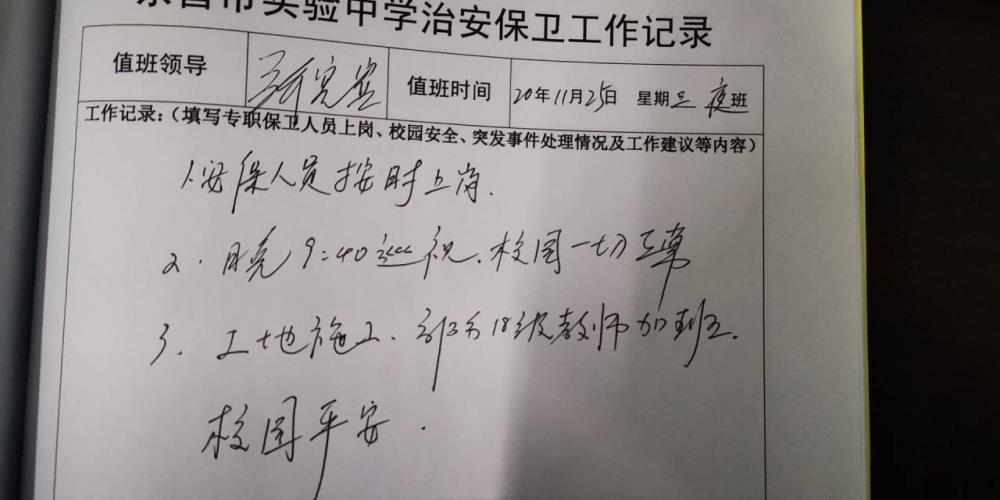 市实验中学治安保卫工作记录
值班领导 值班时间 20年11月25日 星期三 夜班
工作记录:(填写专职保卫人员上岗、校园安全、突发事件处理情况及工作建议等内容)
1.安保人员按时上岗.
2.晚9:40巡视.校园一切正常
3.工地施工.部分18级教师加班.
校园平安.